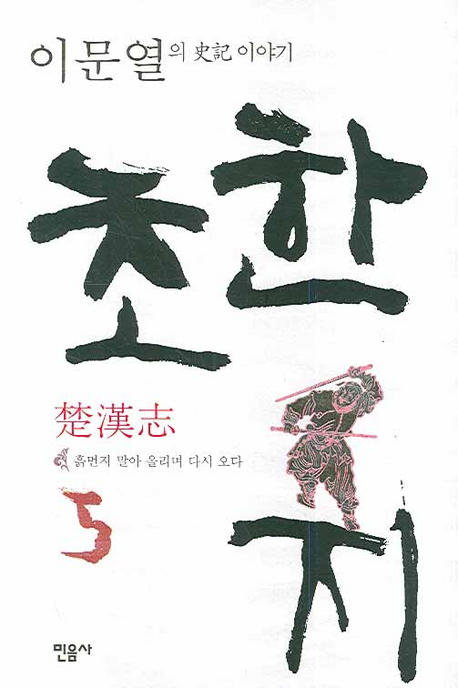 이문열의 史記 이야기
초한지
楚漢志
흙먼지 말아 올리며 다시 오다
5
민음사